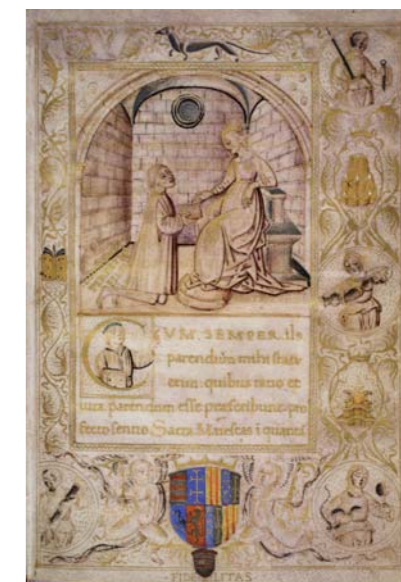 CVM. SEMPER. iis
parendum mihi statu
erim: quibus ratio et
iura parendum esse præscribunt, pro
fecto sentio Sacra Maiestas i
FIDELITAS